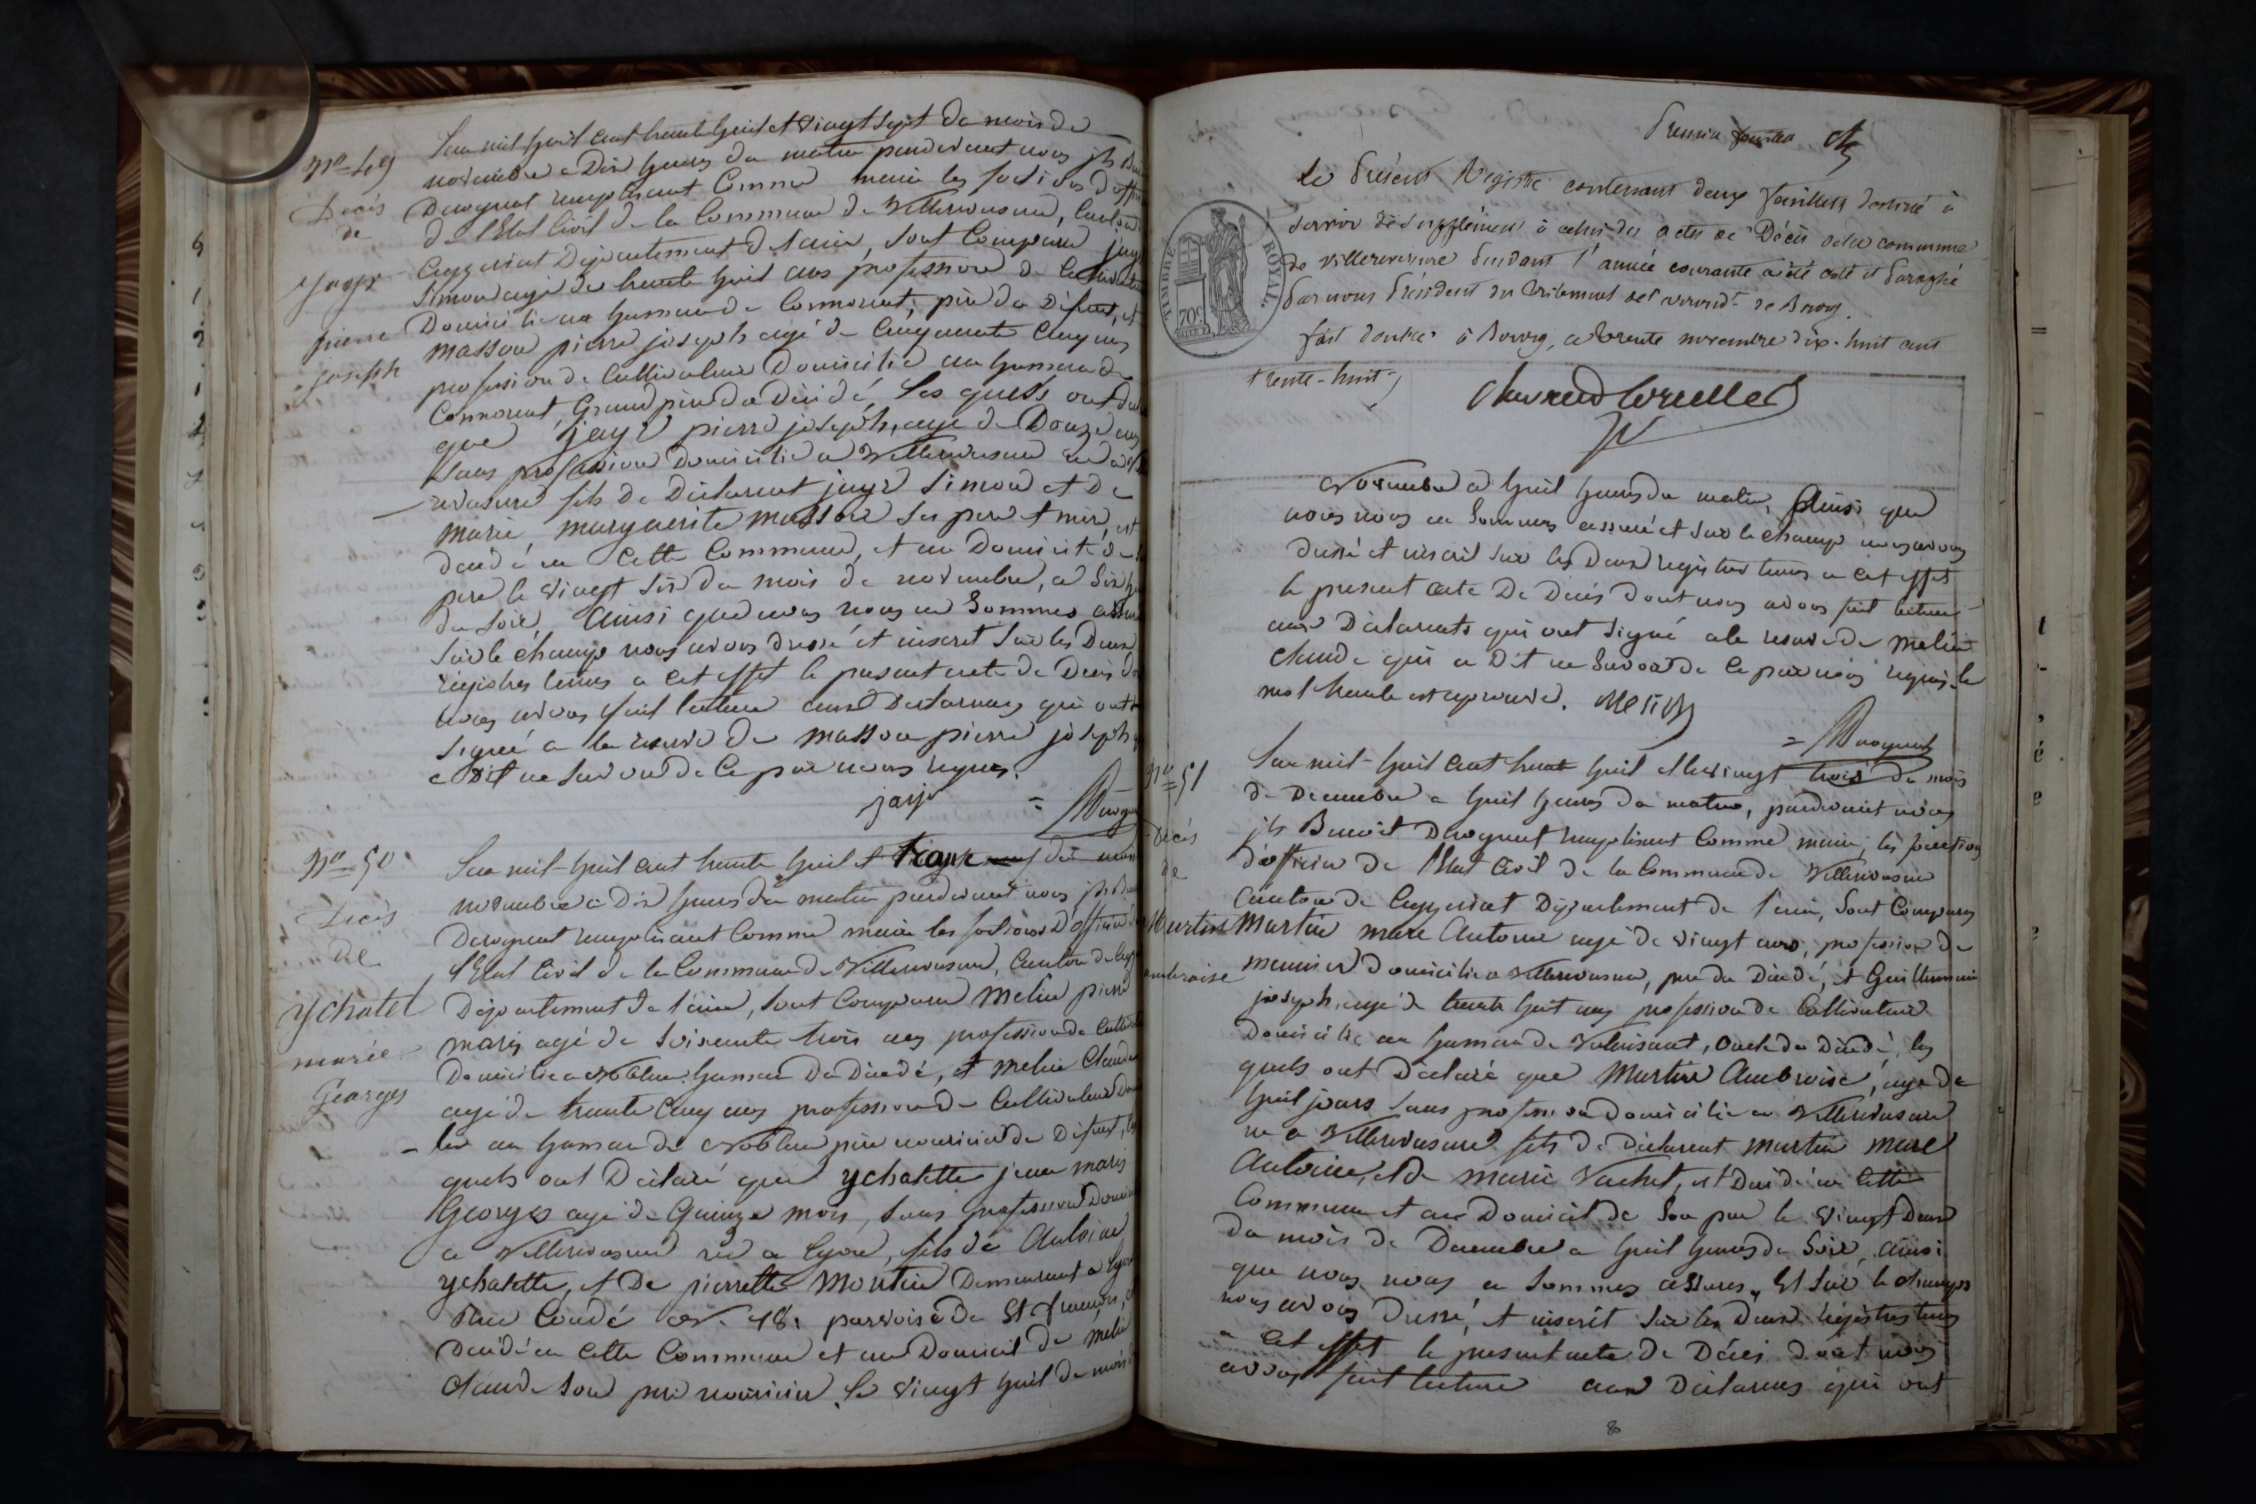 N° 49
Décès
de
jayr
pierre
joseph
L'an mil huit cent trente huit et vingt sept du mois de
novembre a Dix heures du matin pardevant nous jh
Derognat remplissant Comme maire les foctions d'offi
de l'Etat Civil de la Commune de Villereversure, Canton
Ceyzeriat Departement de l'ain, sont Comparu jayr
Simon agé de trente huit ans profession de Cultivateur
Domicilié au hameau de Cormorent, père du Défunt, et
masson pierre joseph agé de Cinquante Cinq ans
profession de Cultivateur Domicilié au hameau de
Cormorent, Grand pere du Décédé, Les quels ont
que jayr pierre joseph, agé de Douze ans
sans profession Domicilié a Villereversure né a Ville
reversure fils de Déclarant jayr Simon et De
marie marguerite masson ses pere et mère, est
décédé en Cette Commune, et au Domicile de
pere le vingt six du mois de novembre, a Six h
du soir, Ainsi que nous nous en Sommes assuré
sur le champ nous avons dressé et inscrit sur les Deux
registres tenus a cet effet le présent acte de Décès
nous avons fait lecture aux Declarants qui ont
signé a la reserve de masson pierre joseph
a Dit ne savoir de Ce par nous requis.
jayr = Derog
N° 50
Décès
de
ychatel
marie
Georges
L'an mil huit cent trente huit et trante du mois
novembre a Dix heures du matin pardevant nous jh
Derognat remplissant Comme maire les foctions D'officier
l'Etat Civil de la Commune de Villereversure, Canton de Ceyz
Departement de l'ain, sont Comparu Melin pierre
marie agé de Soixante trois ans profession de Cultiv
Domicilié a Noblen hameau Du Décédé, et melin Claude
agé de trente Cinq ans profession de Cultivateur Domi
lié au hameau de Noblen père nouricier de Défunt, les
quels ont Déclaré que ychatette jean marie
Georges agé de Quinze mois, sans profession Domi
a Villereversure né a Lyon, fils de Antoine
ychatette, et De pierrette Moutin Demeurant a Lyon
Rue Condé N. 18. parroise De St francois, est
Décédé en Cette Commune et au Domicil de melin
Claude son père nouricier, le vingt huit du mois
Premier feuillet
TIMBRE ROYAL
70c
Le Présent Registre contenant deux feuillets destiné à
servir de supplément à celui des actes de Décès de la commune
de villereversure Pendant l'année courante a été coté et Paraphé
Par nous Président du tribunal de l'arrond.t de Bourg.
fait double à Bourg, ce trente novembre dix-huit cent
trente-huit
Novembre a huit heures du matin, Ainsi que
nous nous en Sommes assuré et sur le champ nous avons
dressé et inscrit sur les Deux registres tenus a cet effet
le présent acte De Décès dont nous avons fait lecture
aux Déclarants qui ont signé a la reserve de melin
Claude qui a Dit ne Savoir de Ce par nous requis. le
mot trente est aprouvé. Melin
= Derognat
N° 51
Décès
de
Martin
ambroise
L'an mil-huit cent trente huit et le vingt trois du mois
de Decembre a huit heures du matin, pardevant nous
jh Benoit Derognat remplissant Comme maire, les foctions
d'officier de l'Etat Civil de la Commune de Villereversure
Canton de Ceyzeriat Département de l'ain, sont Comparus
Martin marc Antoine agé de vingt ans, profession de
meunier Domicilié a Villereversure, père du Décédé, et Guillermin
joseph, agé de trente huit ans profession de Cultivateur
Domicilié au hameau de , oncle du Décédé, les
quels ont Déclaré que Martin Ambroise, agé de
huit jours sans profession domicilié a Villereversure
né a Villereversure fils de déclarant martin marc
Antoine, et de marie Vachet, est Décédé en Cette
Commune et au Domicil de Son père le vingt Deux
du mois de Decembre a huit heures du Soir, Ainsi
que nous nous en Sommes assurés, Et sur le champ
nous avons Dressé, et inscrit sur les Deux registres tenus
a Cet effet le présent acte de Décès dont nous
avons fait lecture aux Déclarants qui ont
8